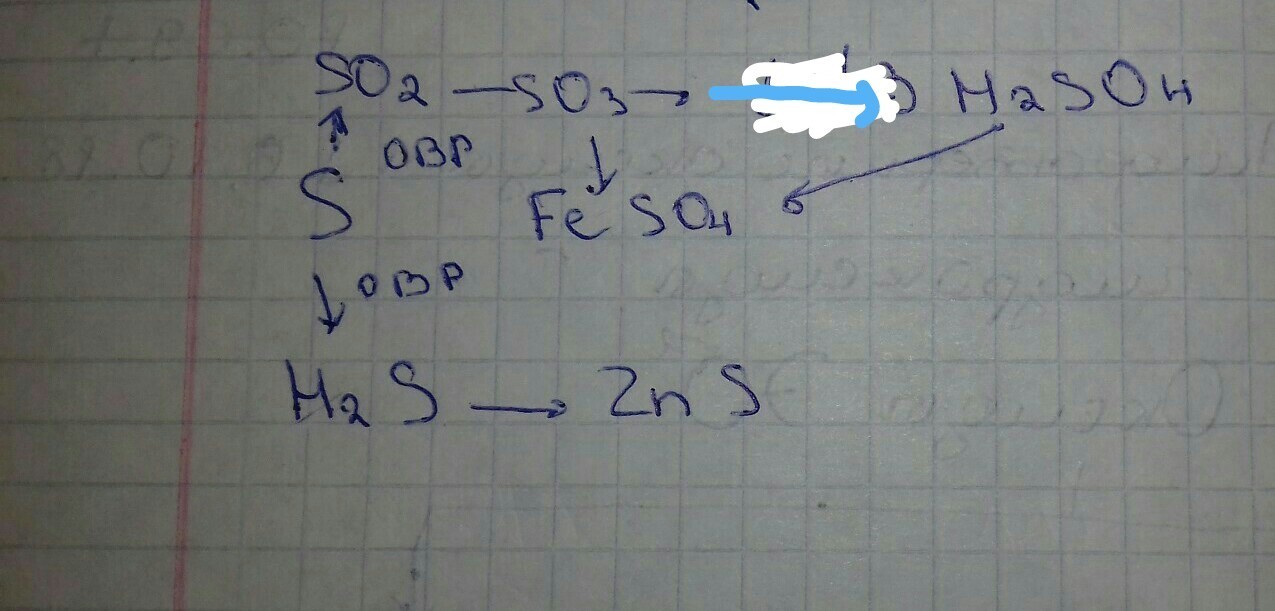 SO2 — SO3 → H2SO4
↑ ОВР ↓
S Fe SO4
↓ ОВР
H2S → Zn S